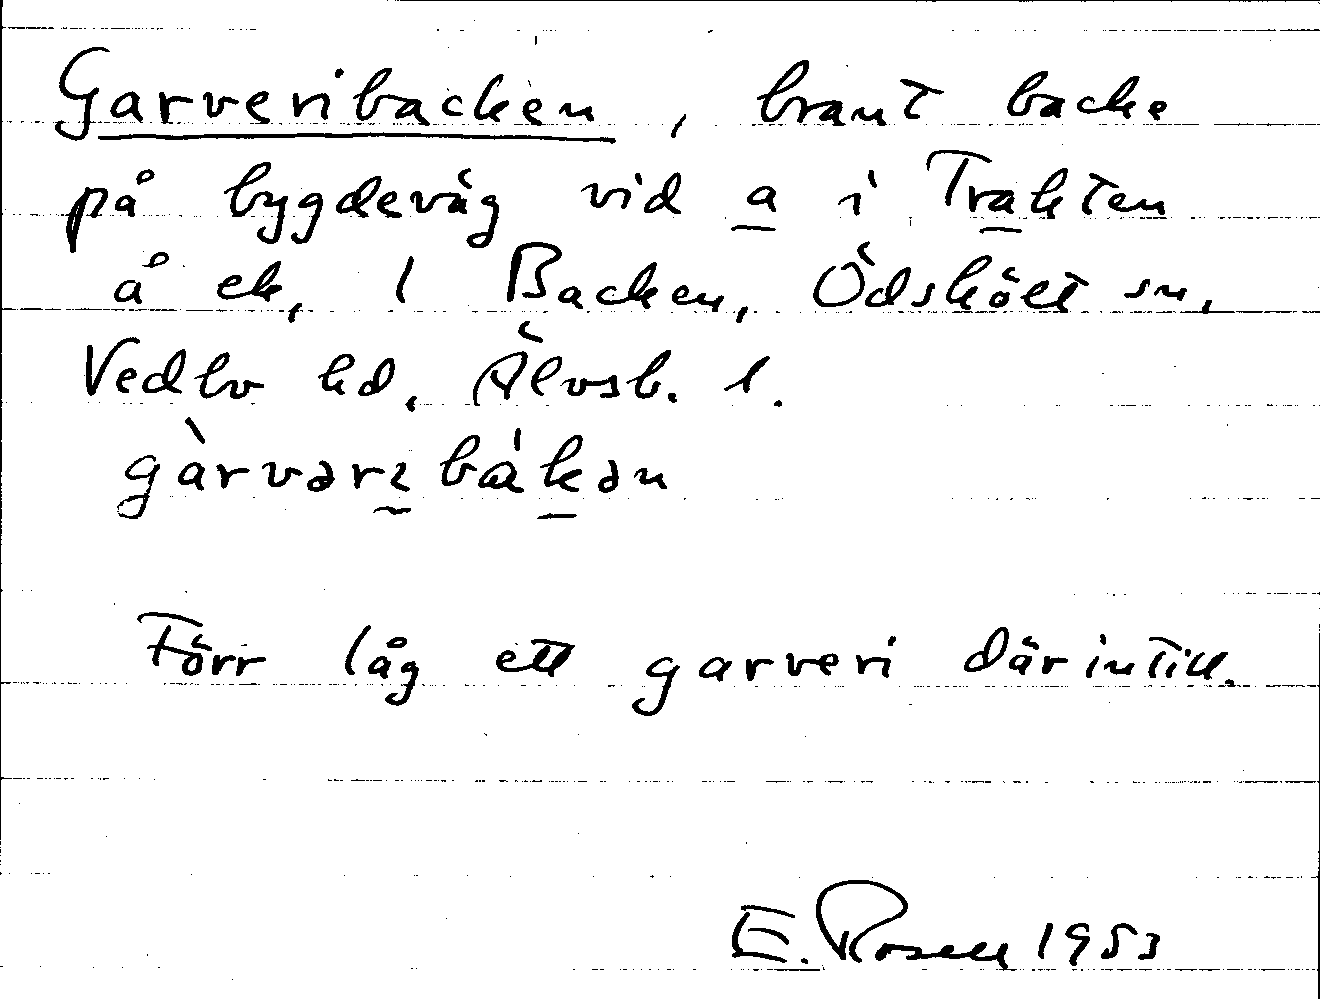 Garveribacken, brant backe
på bygdeväg vid a i Trakten
å ek, 1 Backen, Ödskölt sn,
Vedbo hd, Älvsb. l.
gàrvərɩ bákən
Förr låg ett garveri därintill.
E. Rosell 1953